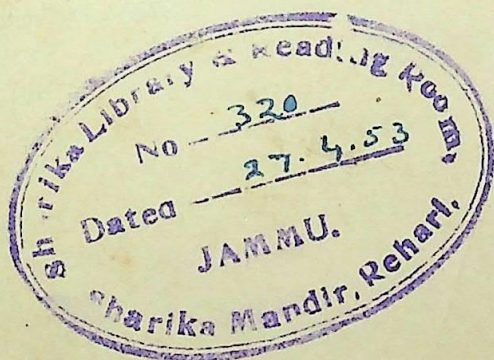 Sharika Library & Reading Room,
No 320
Dated 27.4.53
JAMMU.
Sharika Mandir, Rehari.